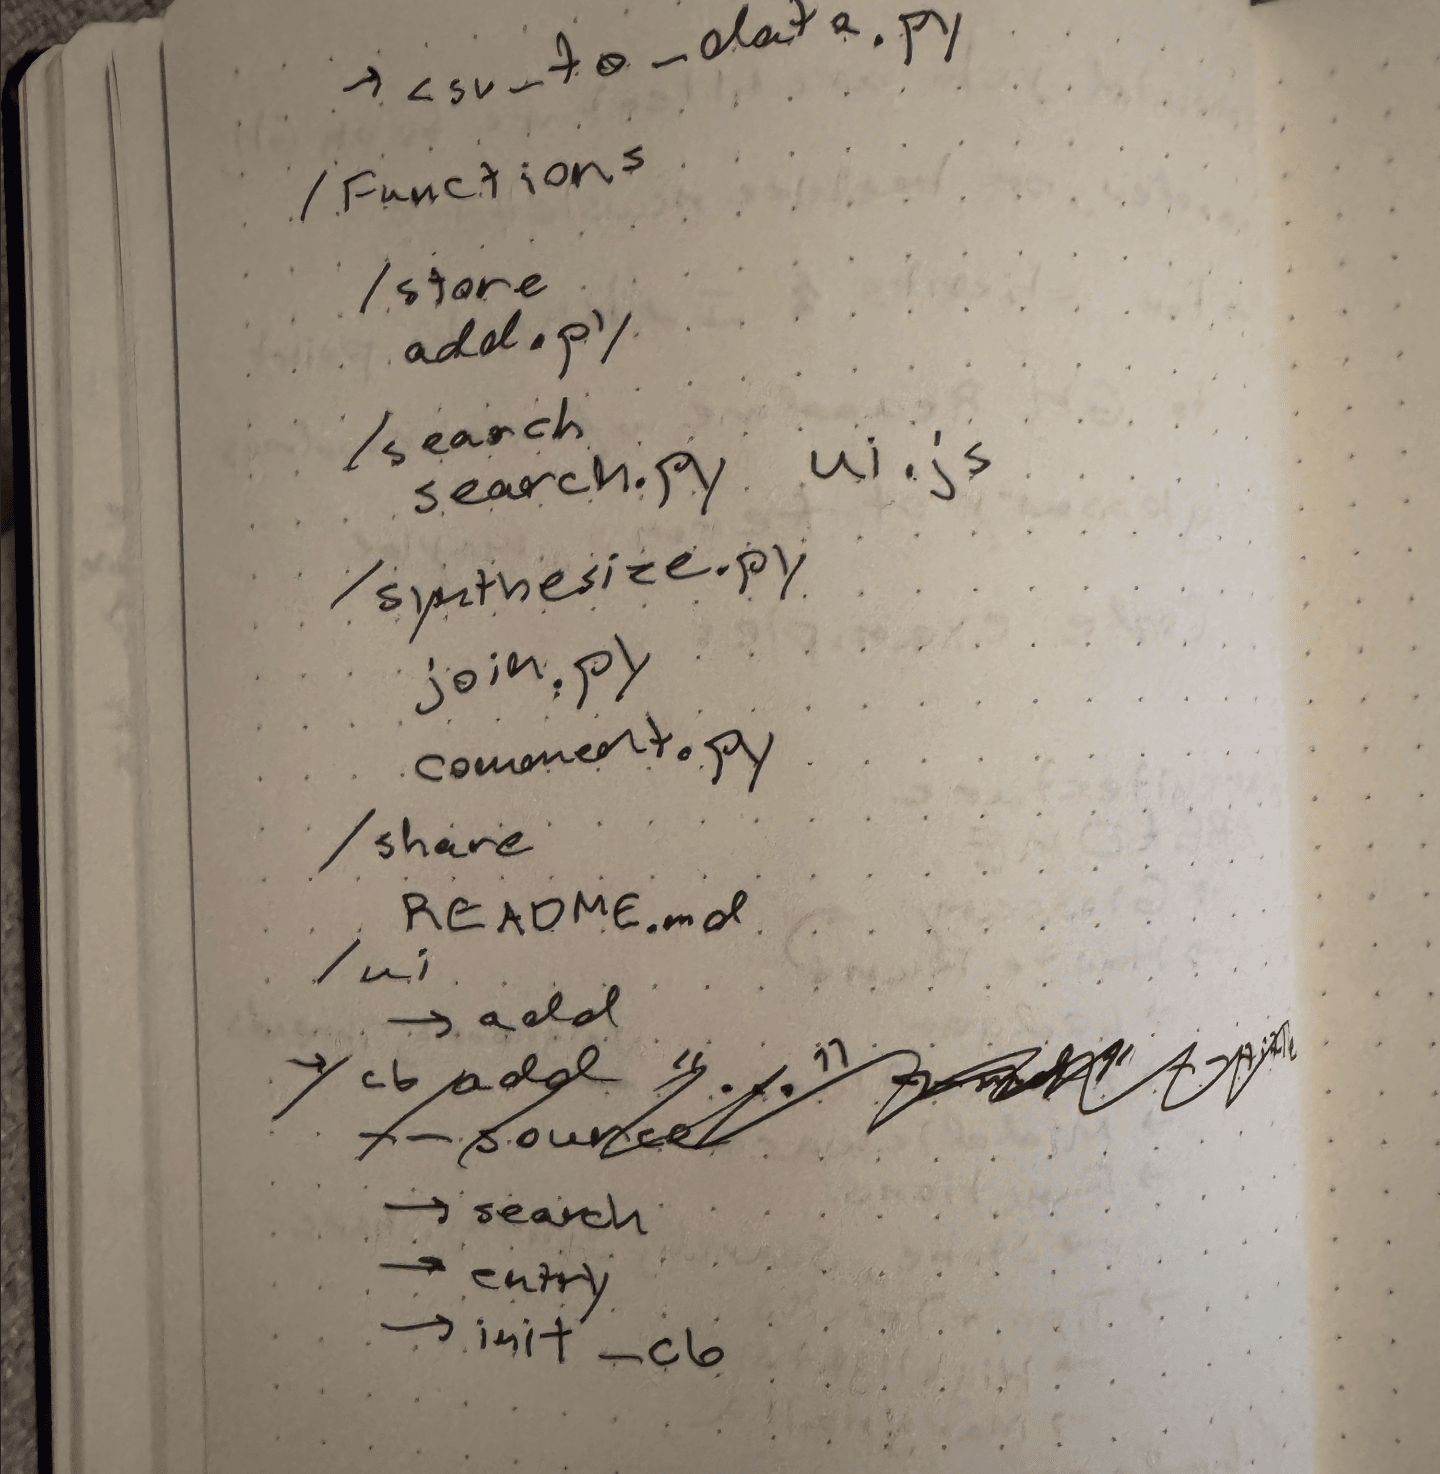 → csv_to_data.py
/Functions
/store
add.py
/search
search.py ui.js
/synthesize.py
join.py
comment.py
/share
README.md
/ui
→ add
→ cb add "..."
-- source
→ search
→ entry
→ init_cb